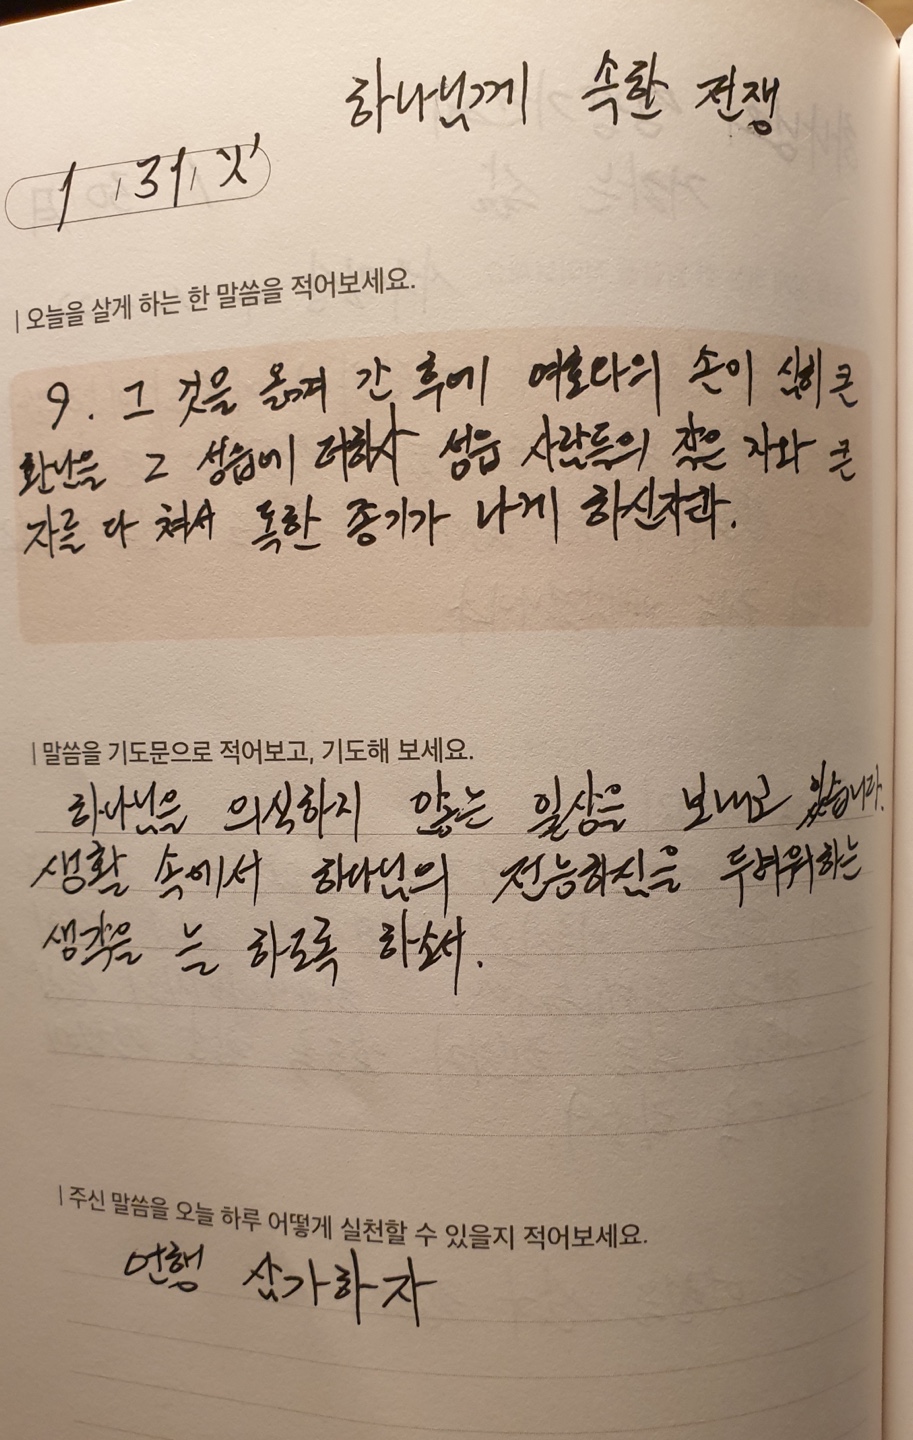 하나님께 속한 전쟁
1 . 31. 火
오늘을 살게 하는 한 말씀을 적어보세요.
9. 그 것을 옮겨 간 후에 여호와의 손이 심히 큰
환난을 그 성읍에 더하사 성읍 사람들의 작은 자와 큰
자를 다 쳐서 독한 종기가 나게 하신지라.
말씀을 기도문으로 적어보고, 기도해 보세요.
하나님을 의식하지 않는 일상을 보내고 있습니다.
생활 속에서 하나님의 전능하진을 두려워하는
생각을 늘 하도록 하소서.
주신 말씀을 오늘 하루 어떻게 실천할 수 있을지 적어보세요.
언행 삼가하자